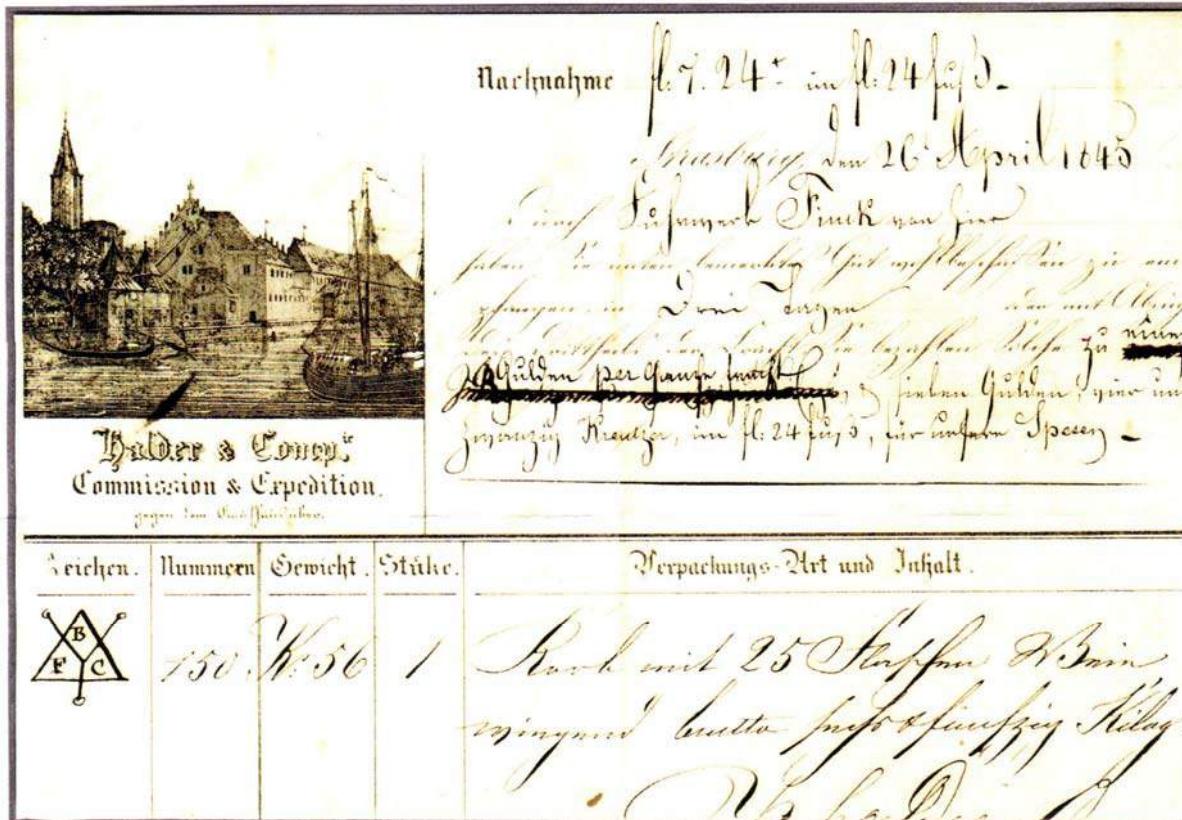 Nachnahme fl. 7. 24 x im fl: 24 fuß.
Strasburg, den 26 April 1845
Durch Fuhrwerk Finck von hier
haben Sie unten bemerktes Gut wohlbeschaffen zu em
pfangen in Drei Tagen oder mit Abzug
Drittheil der Fracht Sie bezahlen Solche zu einem
Gulden per Ganze fracht
& sieben Gulden, vier und
zwanzig Kreutzer, im fl: 24 fuß, für unsere Spesen
Halder & Comp.ie
Commission & Expedition.
gegen dem Kaufhaus über.
Zeichen. Nummern Gewicht. Stüke. Verpackungs-Art und Inhalt.
B F C 150 Ko 56 1 Korb mit 25 Flaschen Wein
wiegend brutto sechs & fünfzig Kilog